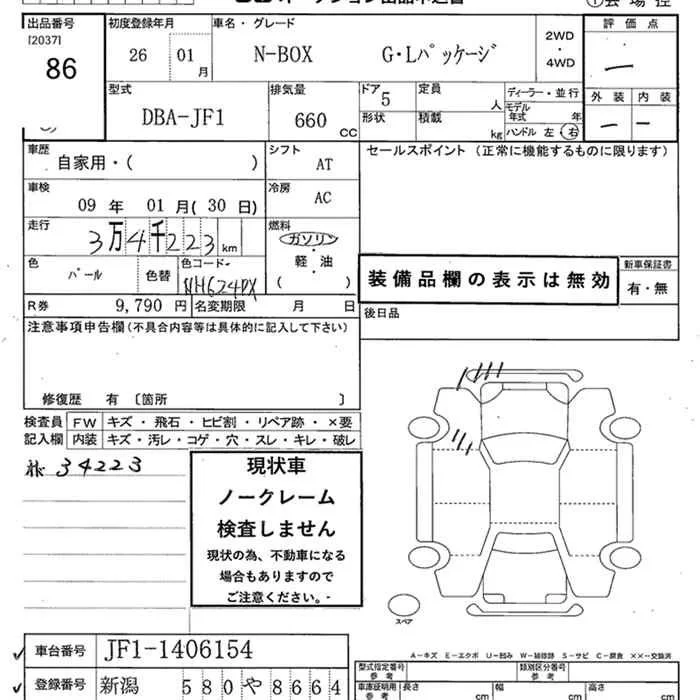 出品番号
[2037]
86
初度登録年月
26 01 月
車名・グレード
N-BOX G・Lパッケージ
2WD
・
4WD
評価点
—
型式
DBA-JF1
排気量
660 cc
ドア
5
形状
定員
人
積載
kg
ディーラー・並行
モデル
年式 年
ハンドル 左・右
外装 内装
— —
車歴
自家用・( )
シフト
AT
セールスポイント (正常に機能するものに限ります)
車検
09 年 01 月(30 日)
冷房
AC
走行
3万4千223 km
燃料
ガソリン
・
軽・油
( )
色
パール
色替
色コード
NH624PX
装備品欄の表示は無効
新車保証書
有・無
R券 9,790 円
名変期限 月 日
後日品
注意事項申告欄(不具合内容等は具体的に記入して下さい)
修復歴 有 〔箇所 〕
検査員
記入欄
FW キズ・飛石・ヒビ割・リペア跡・×要
内装 キズ・汚レ・コゲ・穴・スレ・キレ・破レ
34223
現状車
ノークレーム
検査しません
現状の為、不動車になる
場合もありますので
ご注意ください。
スペア
A-キズ E-エクボ U-凹み W-補修跡 S-サビ C-腐食 ××-交換済
車台番号 JF1-1406154
登録番号 新潟 580 や 8664
型式指定番号
参考
類別区分番号
参考
車庫証明用
参考
長さ cm
幅 cm
高さ cm